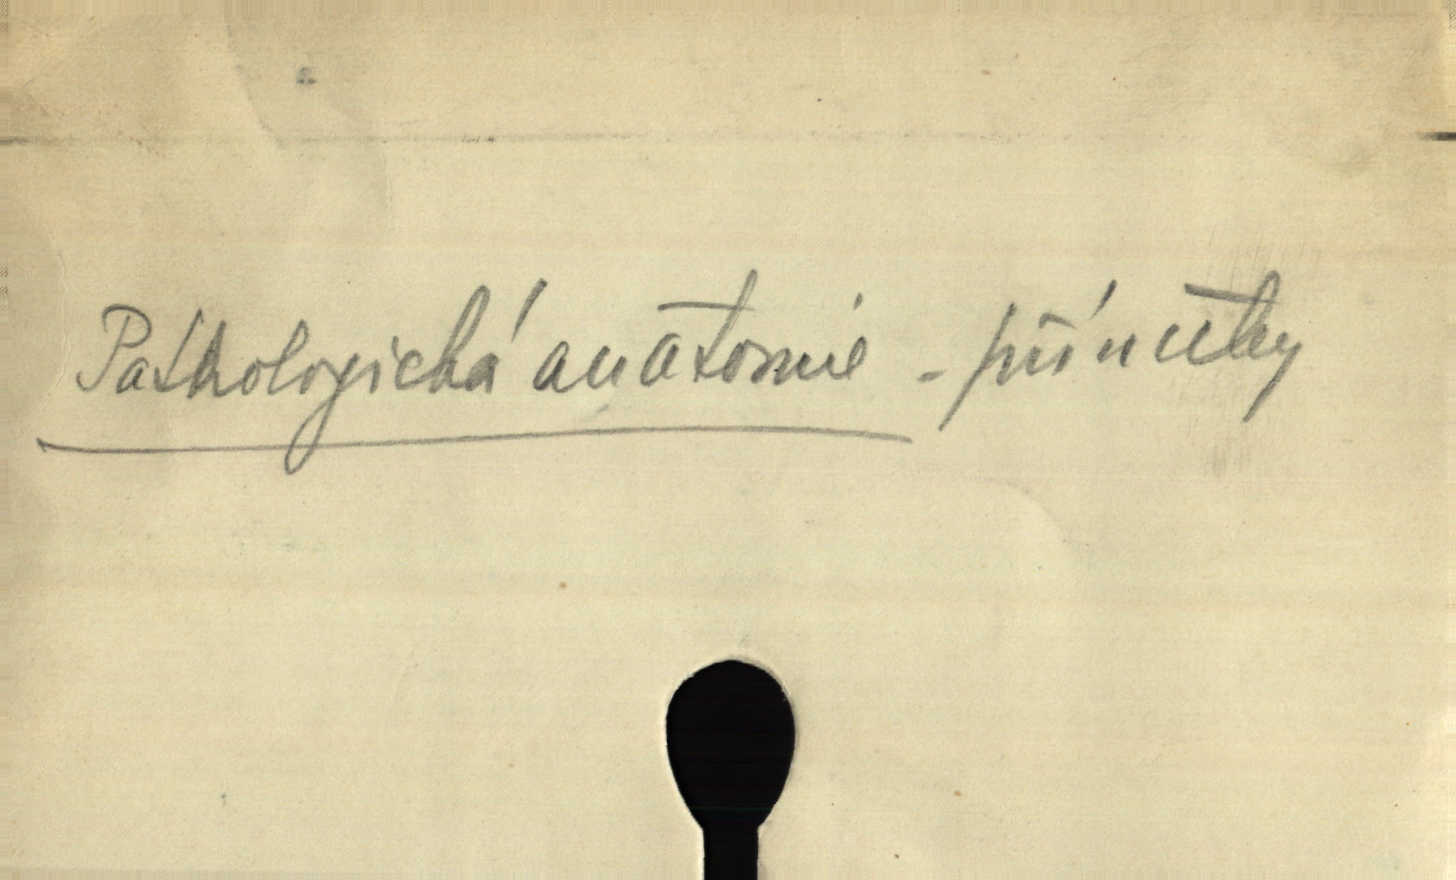 Pathologická anatomie - příručky